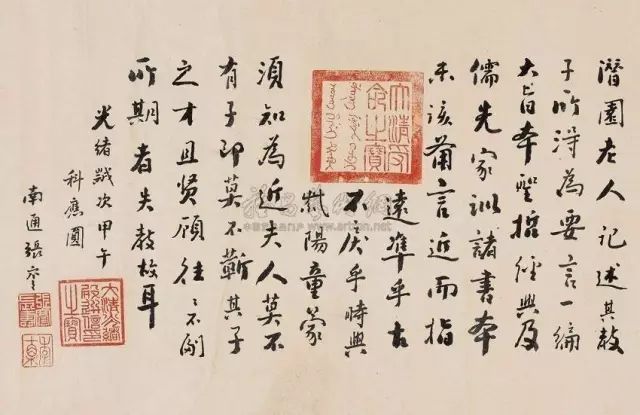 潛園老人記述其教
子所得為要言一編
大旨本聖哲經典及
儒先家訓諸書本
末該備言近而指
遠準乎古
不戾乎時與
陽童蒙
須知為近夫人莫不
有子即莫不蘄其子
之才且賢顧往〻不副
所期者失教故耳
光緒歲次甲午
科應
南通張謇
大清受命之寶